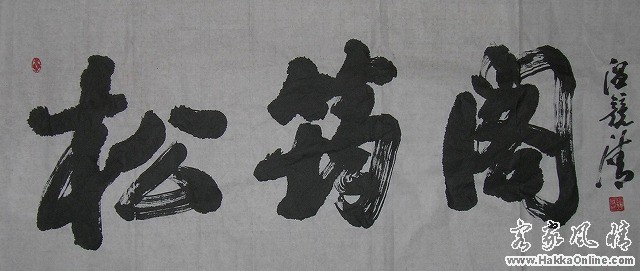 松筠阁
客家風情
www.HakkaOnline.com